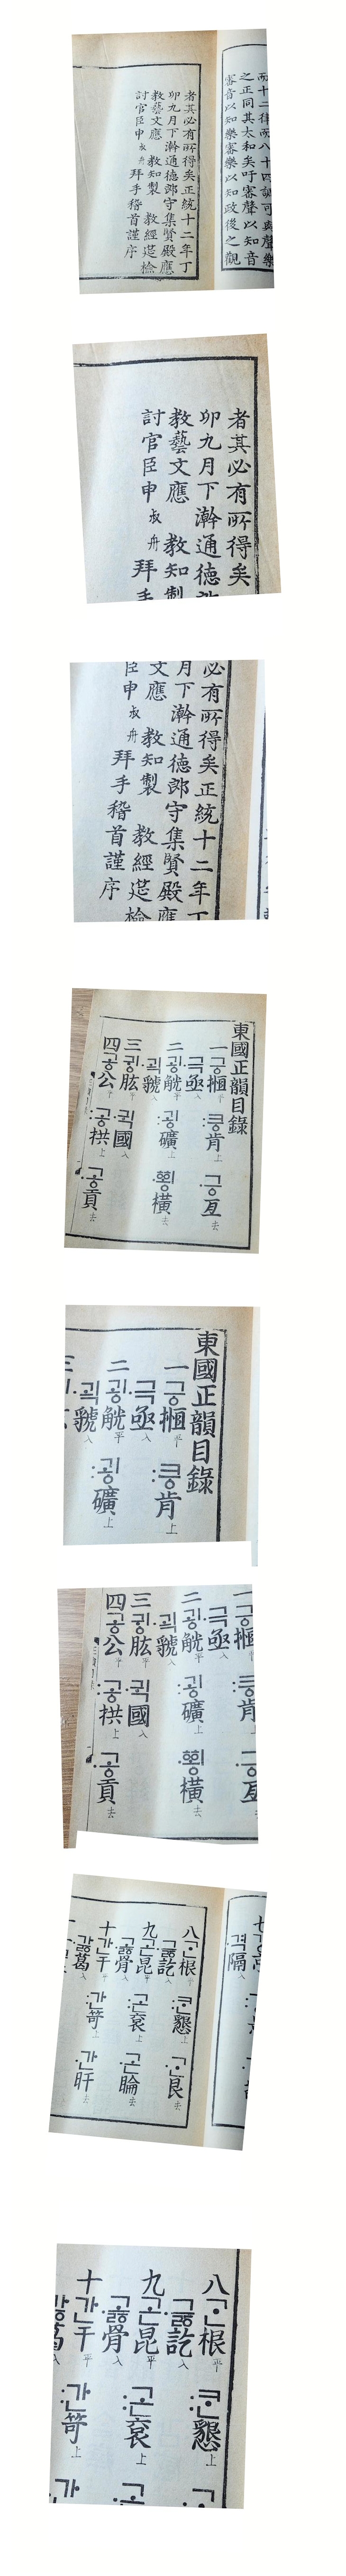 而十二律而八十四調可與聲樂
之正同其太和矣吁審聲以知音
審音以知樂審樂以知政後之觀
者其必有所得矣正統十二年丁
卯九月下澣通德郎守集賢殿應
教藝文應 教知製 教經筵檢
討官臣申叔舟拜手稽首謹序
者其必有所得矣
卯九月下澣通德郎
教藝文應 教知製
討官臣申叔舟拜手
必有所得矣正統十二年丁
月下澣通德郎守集賢殿應
文應 教知製 教經筵檢
臣申叔舟拜手稽首謹序
東國正韻目錄
一긍搄平 :킁肯上 ·긍亙去
·극亟入
二굉觥平 :굉礦上 ·횡橫去
·괵虢入
三귕肱平 ·귁國入
四공公平 :공拱上 ·공貢去
東國正韻目錄
一긍搄平 :킁肯上
·극亟入
二굉觥平 :굉礦上
·괵虢入
三
一긍搄平 :킁肯上 ·긍亙
·극亟入
二굉觥平 :굉礦上 ·횡橫去
·괵虢入
三귕肱平 ·귁國入
四공公平 :공拱上 ·공貢去
七
·격隔入
八ᄀᆞᆫ根平 :ᄏᆞᆫ懇上 ·ᄀᆞᆫ艮去
·ᄀᆞᇙ訖入
九곤昆平 :곤袞上 ·곤睔去
·고ᇙ骨入
十간干平 :간笴上 ·간旰去
·가ᇙ葛入
八ᄀᆞᆫ根平 :ᄏᆞᆫ懇上
·ᄀᆞᇙ訖入
九곤昆平 :곤袞上
·고ᇙ骨入
十간干平 :간笴上
·가ᇙ葛入